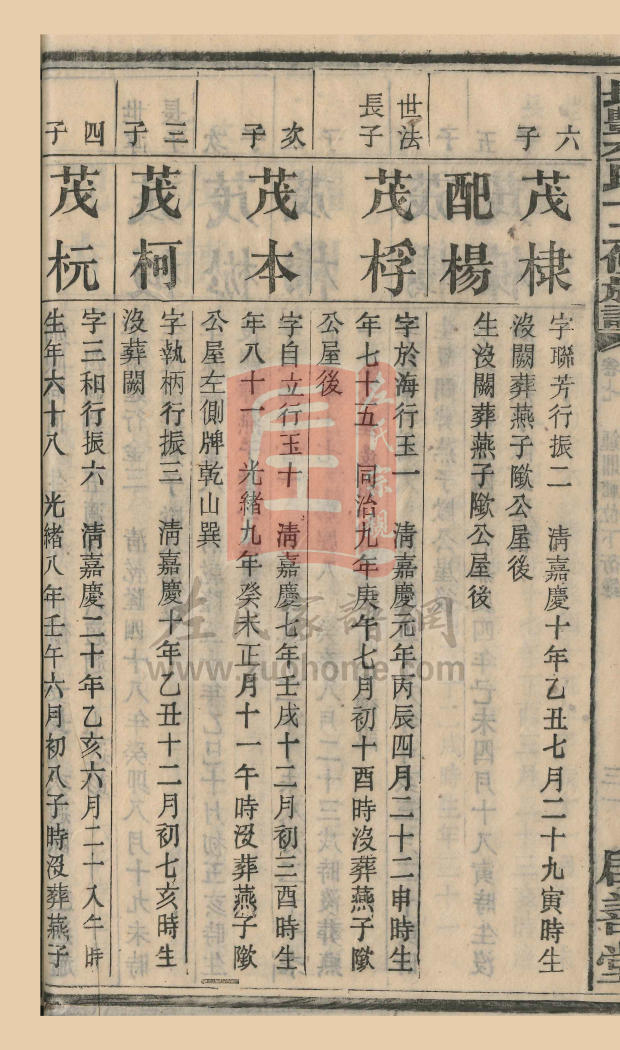 六子
茂棣
字聯芳行振二　淸嘉慶十年乙丑七月二十九寅時生
沒闕葬燕子歞公屋後
配楊
生沒闕葬燕子歞公屋後
世法長子
茂桴
字於海行玉一　淸嘉慶元年丙辰四月二十二申時生
年七十五　同治九年庚午七月初十酉時沒葬燕子歞
公屋後
次子
茂本
字自立行玉十　淸嘉慶七年壬戌十二月初三酉時生
年八十一　光緒九年癸未正月十一午時沒葬燕子歞
公屋左側牌乾山巽
三子
茂柯
字執柄行振三　淸嘉慶十年乙丑十二月初七亥時生
沒葬闕
四子
茂杬
字三和行振六　淸嘉慶二十年乙亥六月二十八午時
生年六十八　光緒八年壬午六月初八子時沒葬燕子
左氏家譜網
www.zuohome.com